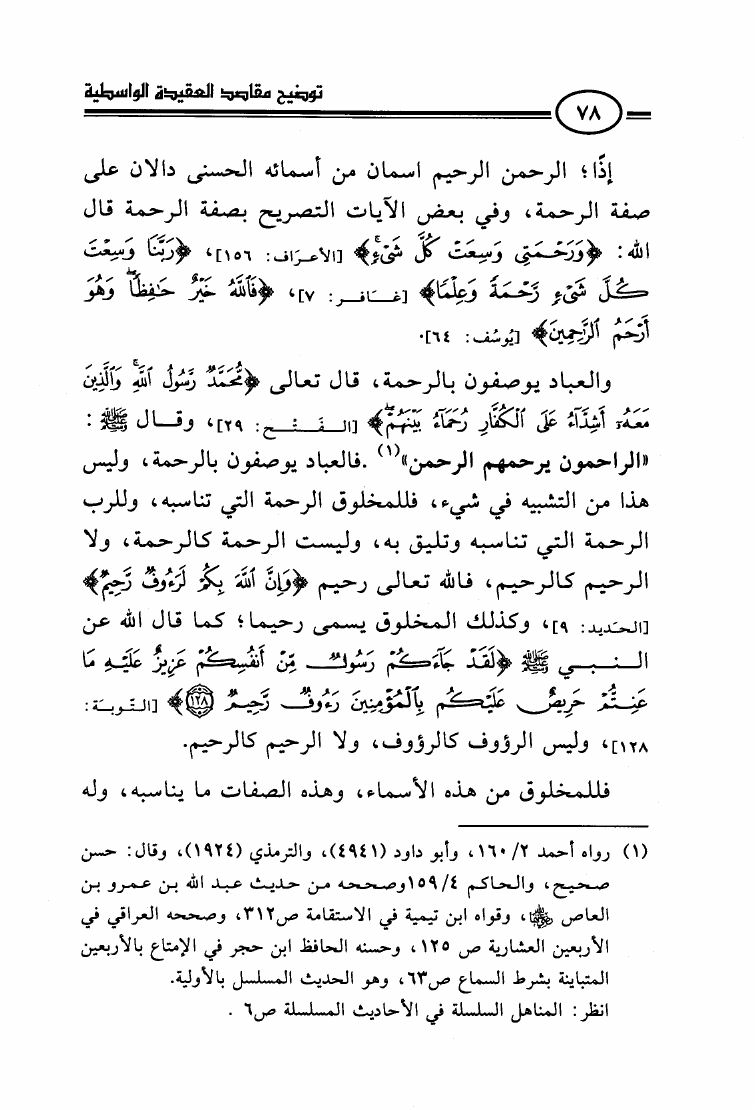 توضيح مقاصد العقيدة الواسطية
٧٨
إذًا؛ الرحمن الرحيم اسمان من أسمائه الحسنى دالان على
صفة الرحمة، وفي بعض الآيات التصريح بصفة الرحمة قال
الله: ﴿وَرَحْمَتِى وَسِعَتْ كُلَّ شَىْءٍ﴾ [الأعرَاف: ١٥٦]، ﴿رَبَّنَا وَسِعْتَ
كُلَّ شَىْءٍ رَّحْمَةً وَعِلْمًا﴾ [غَافر: ٧]، ﴿فَٱللَّهُ خَيْرٌ حَٰفِظًا وَهُوَ
أَرْحَمُ ٱلرَّٰحِمِينَ﴾ [يُوسُف: ٦٤].
والعباد يوصفون بالرحمة، قال تعالى ﴿مُّحَمَّدٌ رَّسُولُ ٱللَّهِ وَٱلَّذِينَ
مَعَهُۥٓ أَشِدَّآءُ عَلَى ٱلْكُفَّارِ رُحَمَآءُ بَيْنَهُمْ﴾ [الفَتْح: ٢٩]، وقال ﷺ:
«الراحمون يرحمهم الرحمن»(١) .فالعباد يوصفون بالرحمة، وليس
هذا من التشبيه في شيء، فللمخلوق الرحمة التي تناسبه، وللرب
الرحمة التي تناسبه وتليق به، وليست الرحمة كالرحمة، ولا
الرحيم كالرحيم، فالله تعالى رحيم ﴿وَإِنَّ ٱللَّهَ بِكُمْ لَرَءُوفٌ رَّحِيمٌ﴾
[الحَديد: ٩]، وكذلك المخلوق يسمى رحيما؛ كما قال الله عن
النبي ﷺ ﴿لَقَدْ جَآءَكُمْ رَسُولٌ مِّنْ أَنفُسِكُمْ عَزِيزٌ عَلَيْهِ مَا
عَنِتُّمْ حَرِيصٌ عَلَيْكُم بِٱلْمُؤْمِنِينَ رَءُوفٌ رَّحِيمٌ ١٢٨﴾ [التّوبَة:
١٢٨]، وليس الرؤوف كالرؤوف، ولا الرحيم كالرحيم.
فللمخلوق من هذه الأسماء، وهذه الصفات ما يناسبه، وله
(١) رواه أحمد ٢/ ١٦٠، وأبو داود (٤٩٤١)، والترمذي (١٩٢٤)، وقال: حسن
صحيح، والحاكم ٤/ ١٥٩وصححه من حديث عبد الله بن عمرو بن
العاص ﵁، وقواه ابن تيمية في الاستقامة ص٣١٢، وصححه العراقي في
الأربعين العشارية ص ١٢٥، وحسنه الحافظ ابن حجر في الإمتاع بالأربعين
المتباينة بشرط السماع ص٦٣، وهو الحديث المسلسل بالأولية.
انظر: المناهل السلسلة في الأحاديث المسلسلة ص٦ .